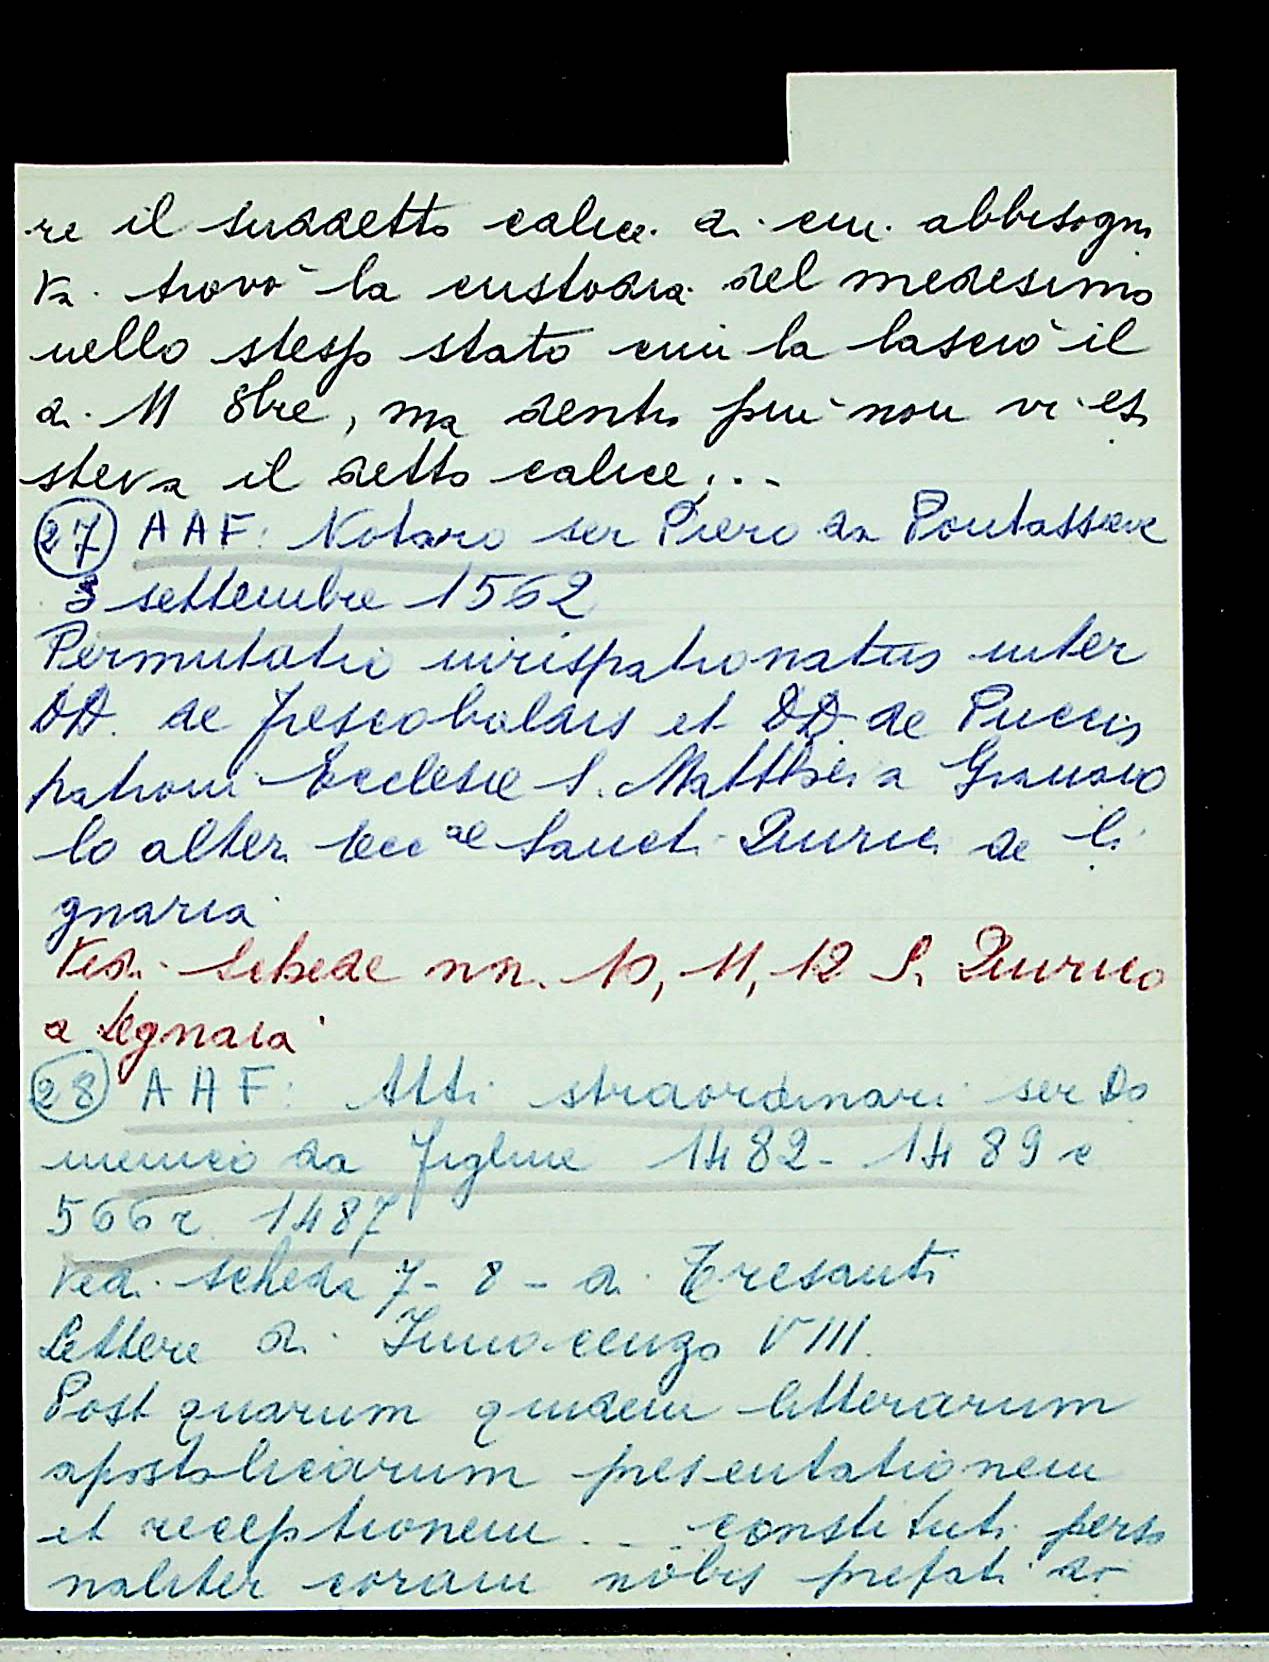 re il suddetto calice di cui abbisogna
va. trovò la custodia del medesimo
nello stesso stato cui la lasciò il
dì 11 8bre, ma dentro più non vi esi
steva il detto calice...
27 AAF: Notaro ser Piero da Pontassieve
3 settembre 1562
Permutatio iurispatronatus inter
DD. de Frescobaldis et DD de Puccis
patroni Ecclesie S. Matthei a Granaio
lo alteri Eccae Sancti Quirici de li
gnaria
Vedi schede nn. 10, 11, 12 S. Quirico
a Legnaia
28 AAF: Atti straordinari ser Do
menico da Figline 1482-1489 c
566r 1487
Vedi scheda 7-8- di Tresanti
Lettere di Innocenzo VIII.
Post quarum quidem litterarum
apostolicarum presentationem
et receptionem ... constituti perso
naliter coram nobis prefati do